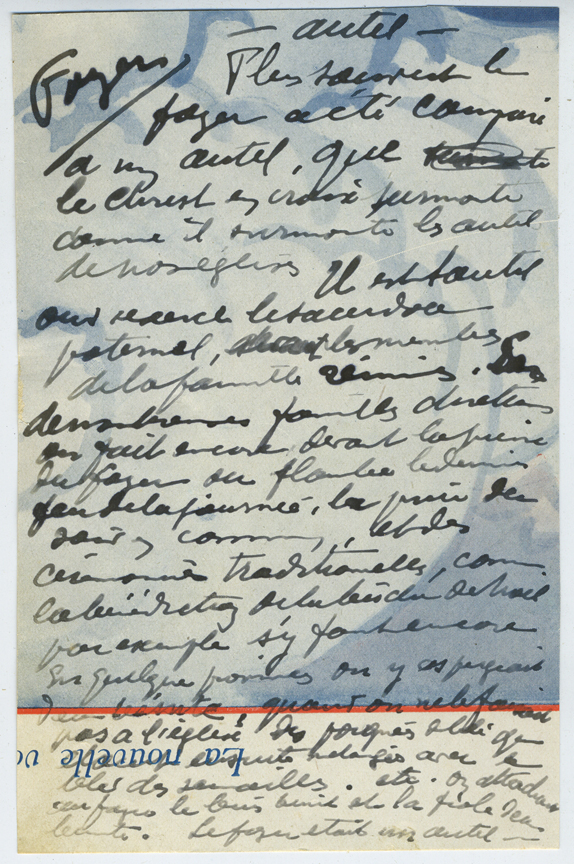 — autel —
Foyers
Plus souvent le
foyer a été comparé
à un autel, que
le Christ en croix surmonte
comme il surmonte les autels
de nos églises Il est l'autel
où s'exerce le sacerdoce
paternel, devant les membres
de la famille réunis. Dans
de nombreuses familles chrétiennes
on fait encore, devant la pierre
du foyer où flambe le dernier
feu de la journée, la prière du
soir en commun, et des
cérémonies traditionnelles, comme
la bénédiction de la bûche de Noël
par exemple s'y font encore
En quelque provinces on y aspergeait
d'eau bénite, quand on ne le faisait
pas à l'église des
La nouvelle
ensuite mélangés avec le
blé des semailles. etc. On attachait
le buis bénit et la fiole d'eau
bénite. Le foyer était un autel —